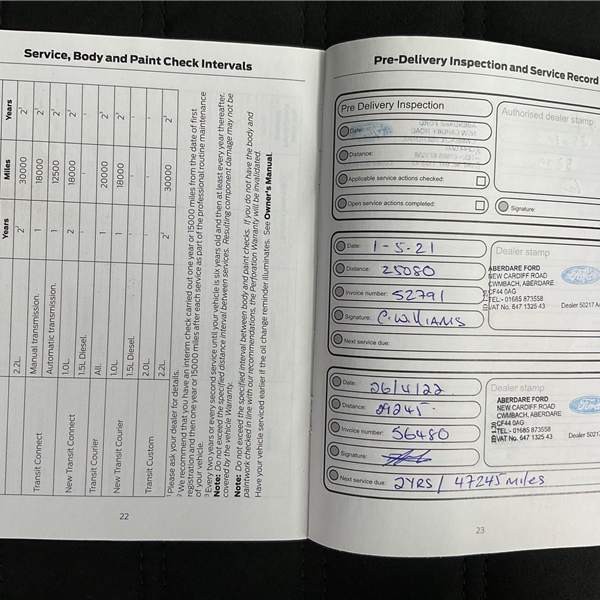 Service, Body and Paint Check Intervals
Years Miles Years
2.2L. 2² 30000 2³
Transit Connect Manual transmission. 1 18000 2³
Automatic transmission. 1 12500 2³
New Transit Connect 1.0L. 2 18000 2³
1.5L Diesel.
Transit Courier All. 1 20000 2³
New Transit Courier 1.0L. 1 18000 2³
1.5L Diesel.
Transit Custom 2.0L.
2.2L. 2² 30000 2³
¹ Please ask your dealer for details.
² We recommend that you have an interim check carried out one year or 15000 miles from the date of first
registration and then one year or 15000 miles after each service as part of the professional routine maintenance
of your vehicle.
³ Every two years or every second service until your vehicle is six years old and then at least every year thereafter.
Note: Do not exceed the specified distance interval between services. Resulting component damage may not be
covered by the vehicle Warranty.
Note: Do not exceed the specified interval between body and paint checks. If you do not have the body and
paintwork checked in line with our recommendations, the Perforation Warranty will be invalidated.
Have your vehicle serviced earlier if the oil change reminder illuminates. See Owner's Manual.
22
Pre-Delivery Inspection and Service Record
Pre Delivery Inspection
Authorised dealer stamp
Date:
Distance:
Applicable service actions checked:
Open service actions completed:
Signature:
Date: 1-5-21
Distance: 25080
Invoice number: 52791
Signature: C. WILLIAMS
Next service due:
Dealer stamp
ABERDARE FORD
NEW CARDIFF ROAD
CWMBACH, ABERDARE
CF44 0AG
TEL:- 01685 873558
VAT No. 647 1325 43
Ford
Dealer 50217 AA
Date: 26/4/22
Distance: 29245
Invoice number: 56480
Signature:
Next service due: 2YRS / 47245 MILES
Dealer stamp
ABERDARE FORD
NEW CARDIFF ROAD
CWMBACH, ABERDARE
CF44 0AG
TEL:- 01685 873558
VAT No. 647 1325 43
Ford
Dealer 50217
23